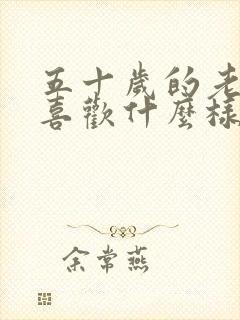 五十歲的老
喜歡什麼樣
余常燕